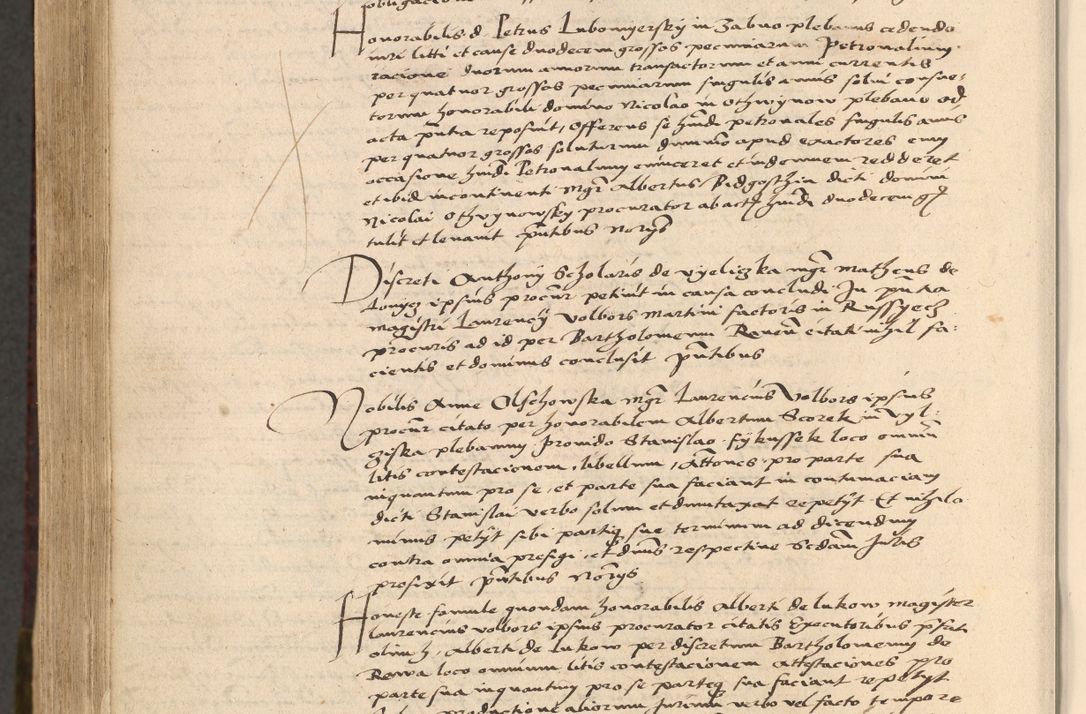 obligacione
Honorabilis d. Petrus Lubomyersky in Zabno plebanus cedendo
iuri litti et cause duodecem grossos pecuniarum Petronalium
racione duorum annorum transactorum et anni currentis
per quatuor grossos pecuniarum singulis annis solui consue-
torum honorabili domino Nicolao in Othwynow plebano ad
acta pntia reposuit, Offerens se hmdi petronales singulis annis
per quatuor grossos soluturum dummo apud exactores eum
occasione hmdi Petronalium euinceret et indemnem redderet
et ibid incontinenti Mgr Albertus Bidgosthia dicti domini
Nicolai Othwynowsky procurator ab actis hmdi duodecem g
tulit et leuauit pntibus Norys
Discreti Anthony Scholaris de vyeliczka mgr Matheus de
Lonycz ipsius procur petiuit in causa concludi In pntia
magistri Laurency Volbors Martini factoris in Russyecz
procuris ad id per Bartholomeum Rauen citati nihil fa-
cientis et dominus conclusit pntibus
Nobilis Anne Olschowska mgr Laurencius Volbors ipsius
procur citato per honorabilem Albertum Scorek in Vyl-
giska plebanum Prouido Stanislao Fykussek loco omniu
litis contestacionem, libellum, Attones pro parte sua
inquantum pro se, et parte sua faciant in contumaciam
dicti Stanislai verbo solum et dumtaxat repetyt Et nihilo
minus petyt sibi partiq sue terminum ad dicendum
contra omnia prefigi, et dnus respectiue Sedam Juris
prefixit pntibus Norys
Honeste famule quondam honorabilis Alberti de Lukow Magister
Laurencius Volbors ipsius procurator citatis Executoribus pfati
olim h. Alberti de Lukow per discretum Bartholomeum de
Rewa loco omnium litis contestacionem attestaciones pro
parte sua inquantum pro se parteq sua faciant repetyt
productione aliorum Jurium verbo vel facto tempore